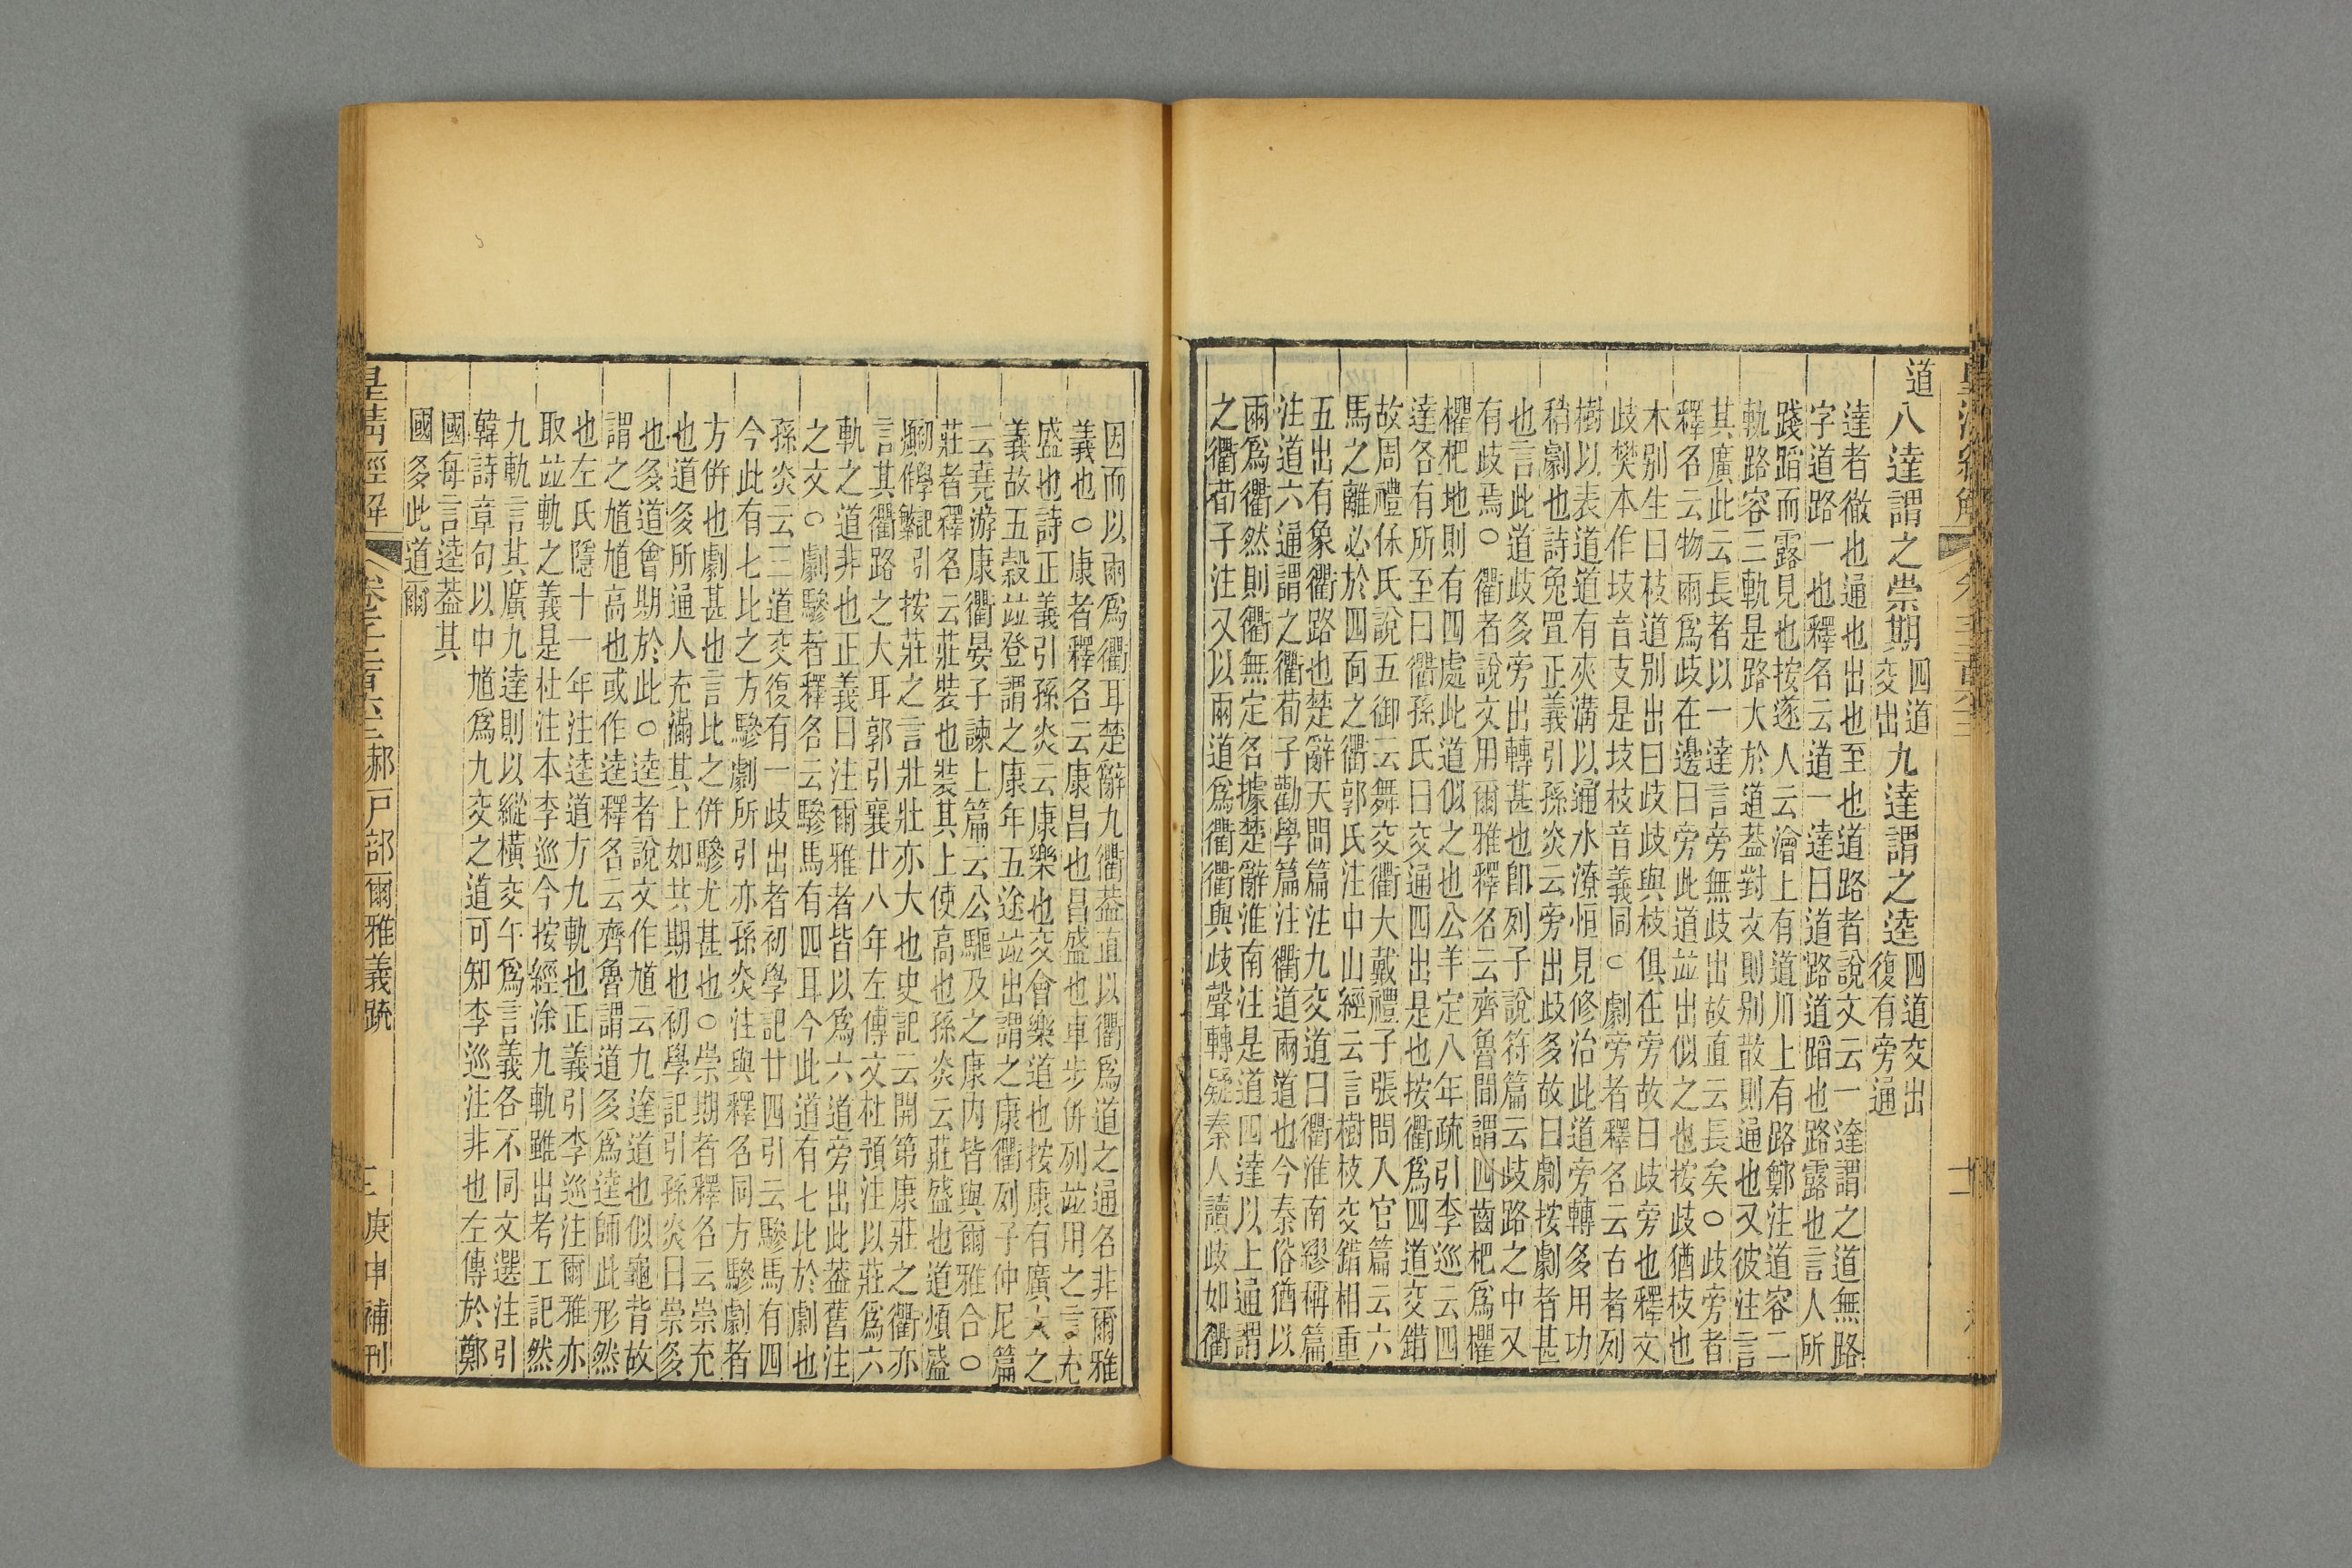 道
八達謂之崇期
四道
交出
九達謂之逵
四道交出
復有旁通
達者徹也通也出也至也道路者說文云一達謂之道無路
字道路一也釋名云道一達曰道路道蹈也路露也言人所
踐蹈而露見也按遂人云澮上有道川上有路鄭注道容二
軌路容三軌是路大於道葢對文則別散則通也又彼注言
其廣此云長者以一達言旁無歧出故直云長矣○歧旁者
釋名云物兩爲歧在邊曰旁此道竝出似之也按歧猶枝也
木別生曰枝道別出曰歧歧與枝俱在旁故曰歧旁也釋文
歧樊本作坆音支是坆枝音義同○劇旁者釋名云古者列
樹以表道道有夾溝以通水潦恒見修治此道旁轉多用功
稍劇也詩兔罝正義引孫炎云旁出歧多故曰劇按劇者甚
也言此道歧多旁出轉甚也卽列子說符篇云歧路之中又
有歧焉○衢者說文用爾雅釋名云齊魯間謂四齒杷爲欋
欋杷地則有四處此道似之也公羊定八年疏引李巡云四
達各有所至曰衢孫氏曰交通四出是也按衢爲四道交錯
故周禮保氏說五御云舞交衢大戴禮子張問入官篇云六
馬之離必於四面之衢郭氏注中山經云言樹枝交錯相重
五出有象衢路也楚辭天問篇注九交道曰衢淮南繆稱篇
注道六通謂之衢荀子勸學篇注衢道兩道也今秦俗猶以
兩爲衢然則衢無定名據楚辭淮南注是道四達以上通謂
之衢荀子注又以兩道爲衢衢與歧聲轉疑秦人讀歧如衢
因而以兩爲衢耳楚辭九衢葢直以衢爲道之通名非爾雅
義也○康者釋名云康昌也昌盛也車步併列竝用之言充
盛也詩正義引孫炎云康樂也交會樂道也按康有廣大之
義故五穀竝登謂之康年五途竝出謂之康衢列子仲尼篇
云堯游康衢晏子諫上篇云公驅及之康內皆與爾雅合○
莊者釋名云莊裝也裝其上使高也孫炎云莊盛也道煩盛
初學記引
繁作
按莊之言壯壯亦大也史記云開第康莊之衢亦
言其衢路之大耳郭引襄廿八年左傳文杜預注以莊爲六
軌之道非也正義曰注爾雅者皆以爲六道旁出此葢舊注
之文○劇驂者釋名云驂馬有四耳今此道有七比於劇也
孫炎云三道交復有一歧出者初學記廿四引云驂馬有四
今此有七比之方驂劇所引亦孫炎注與釋名同方驂劇者
方併也劇甚也言比之併驂尤甚也○崇期者釋名云崇充
也道多所通人充滿其上如共期也初學記引孫炎曰崇多
也多道會期於此○逵者說文作馗云九達道也似龜背故
謂之馗馗高也或作逵釋名云齊魯謂道多爲逵師此形然
也左氏隱十一年注逵道方九軌也正義引李巡注爾雅亦
取竝軌之義是杜注本李巡今按經涂九軌雖出考工記然
九軌言其廣九達則以縱橫交午爲言義各不同文選注引
韓詩章句以中馗爲九交之道可知李巡注非也左傳於鄭
國每言逵葢其
國多此道爾
皇清經解
郝戶部爾雅義疏
庚申補刊